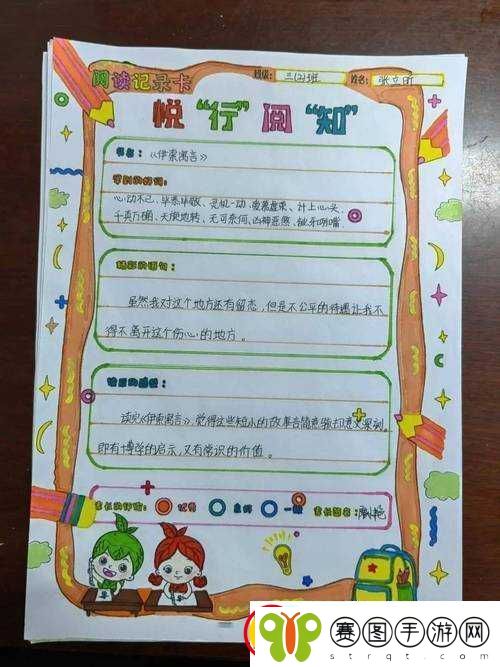 阅读记录卡 班级：三(2)班 姓名：张立昕
悦“行”阅“知”
书名：《伊索寓言》
学到的好词：
心动不已、毕恭毕敬、灵机一动、爱慕虚荣、计上心头、
千真万确、天旋地转、无可奈何、凶神恶煞、龇牙咧嘴
精彩的语句：
虽然我对这个地方还有留恋，但是不公平的待遇让我不
得不离开这个伤心的地方。
读后的感想：
读完《伊索寓言》，觉得这些短小的故事言简意赅却意义深刻。
即有博学的启示，又有常识的价值。
家长的评价： 优秀 良好 一般 家长签名：
赛图手游网
strqt.com